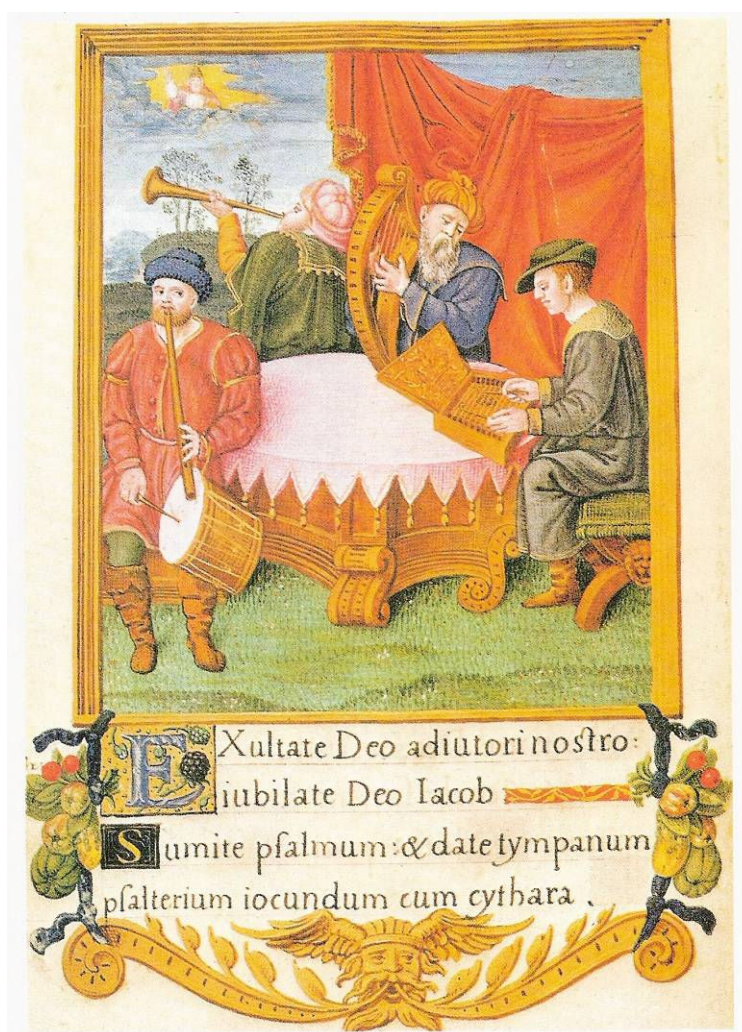 EXultate Deo adiutori nostro:
iubilate Deo Iacob
Sumite pſalmum: & date tympanum
pſalterium iocundum cum cythara .